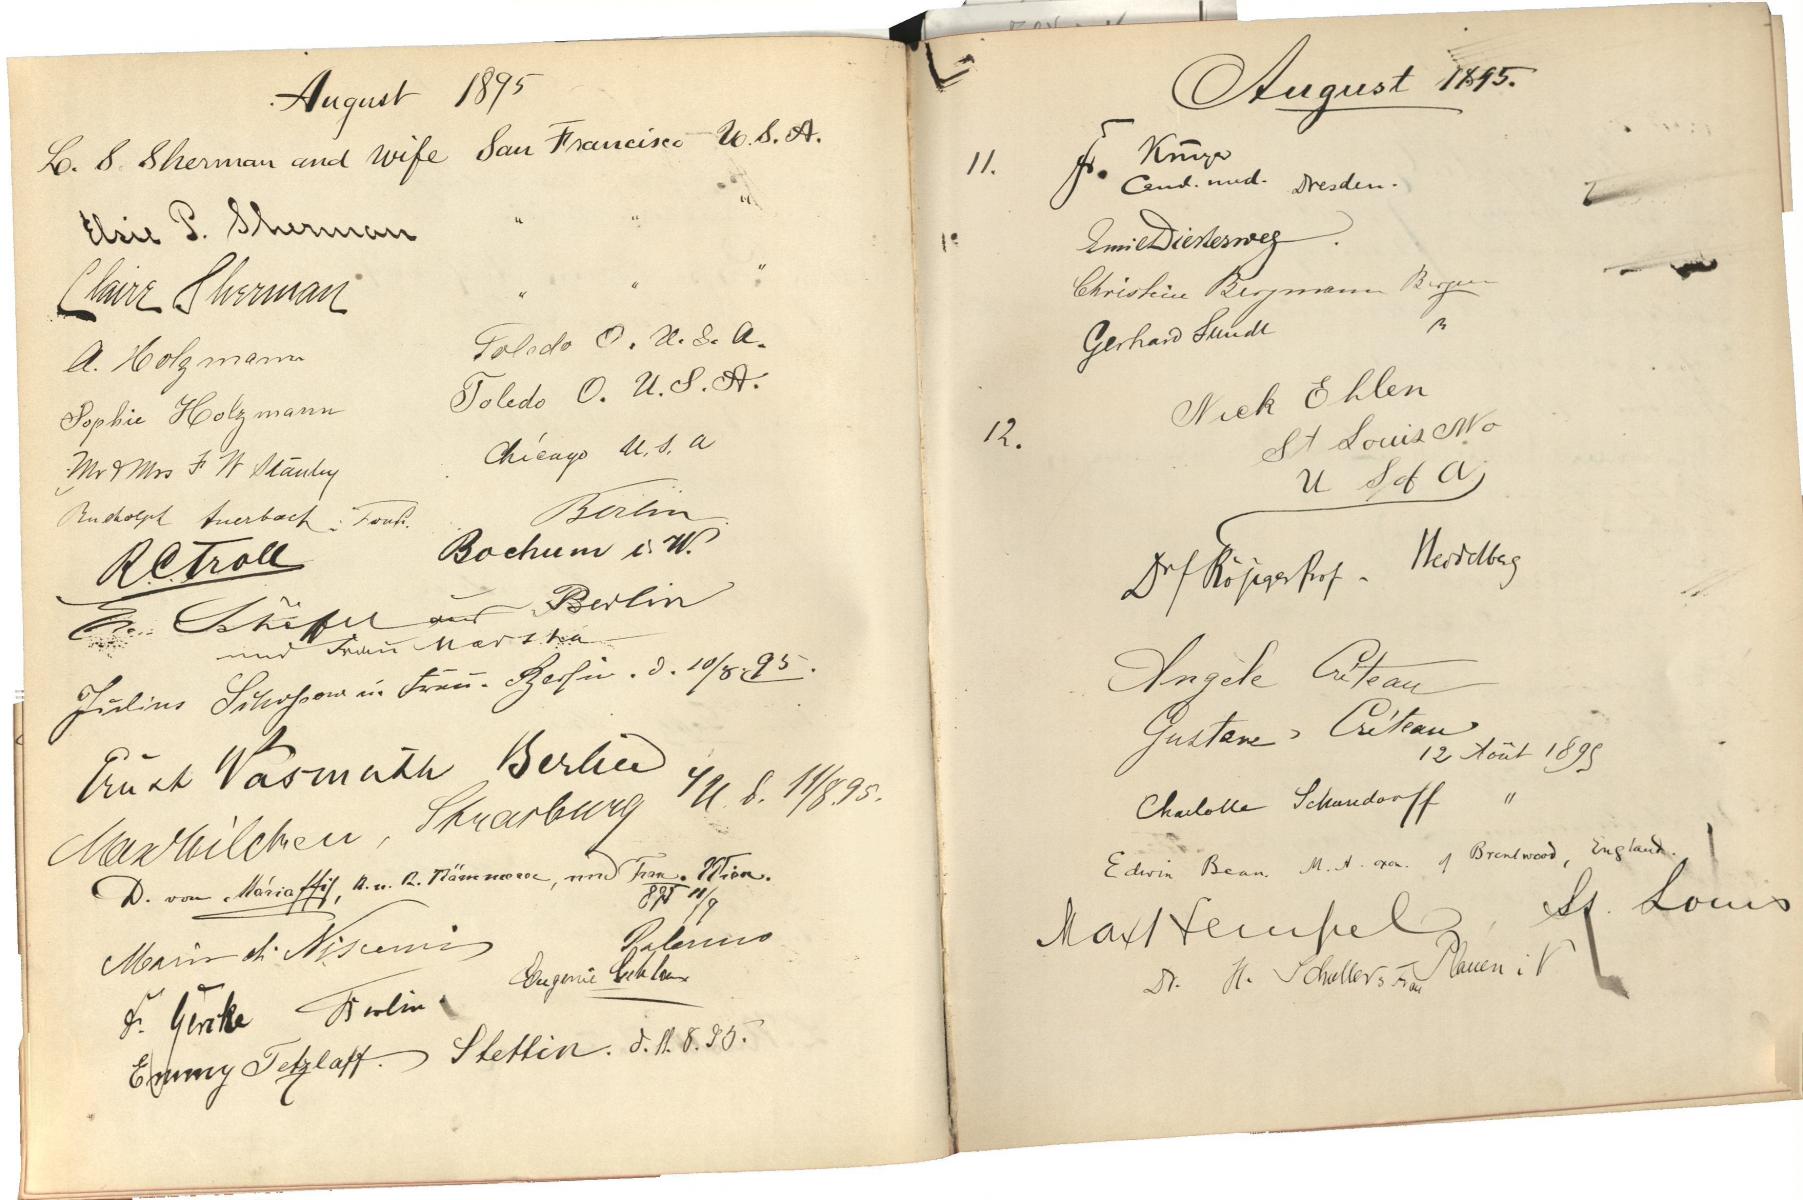 August 1895
L. S. Sherman and wife San Francisco U.S.A.
Elsie P. Sherman " " "
Claire Sherman " " "
A. Holzmann Toledo O. U.S.A.
Sophie Holzmann Toledo O. U.S.A.
Mr & Mrs F W Stanley Chicago U.S.A
Rudolph Auerbach Berlin
R.C. Troll Bochum i. W.
aus Berlin
und Frau
Julius u. Frau. Berlin. d. 10/8. 95.
Ernst Wasmuth Berlin
Max Milchen, Strassburg 11/8.95.
D. von Máriaffy, und Frau. Wien.
Palermo
Eugenie
F. Gericke Berlin
Emmy Tetzlaff. Stettin. d. 11. 8. 95.
August 1895.
11. Fr. Krüger
Cand. med. Dresden.
Emil Diesterweg.
Christine Bergmann Bergen
Gerhard Sundt "
12. Nick Ehlen
St Louis Mo
U S of A
Dr Prof. Heidelberg
Angèle Criteau
Gustave Criteau
12 Août 1895
Charlotte Schandorff "
Edwin Bean. M. A. oxon. of Brentwood, England.
Max Hempel, St. Louis
Dr. H. Schuller & Frau Plauen i V